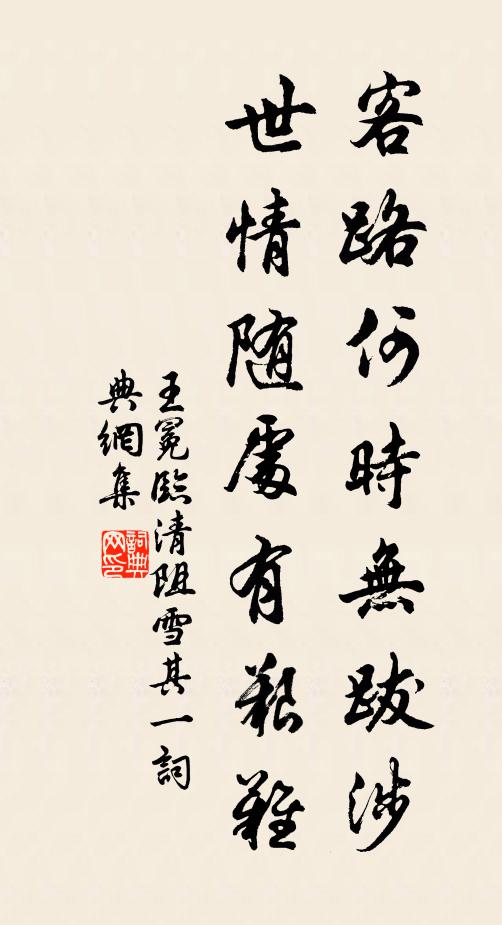 客路何時無跋涉
世情随處有艱難
王冕臨清阻雪其一詞
典網集
詞典
网印